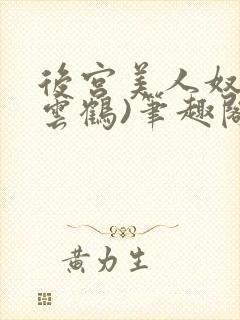 後宮美人奴
雲鶴)筆趣閣
黃力生